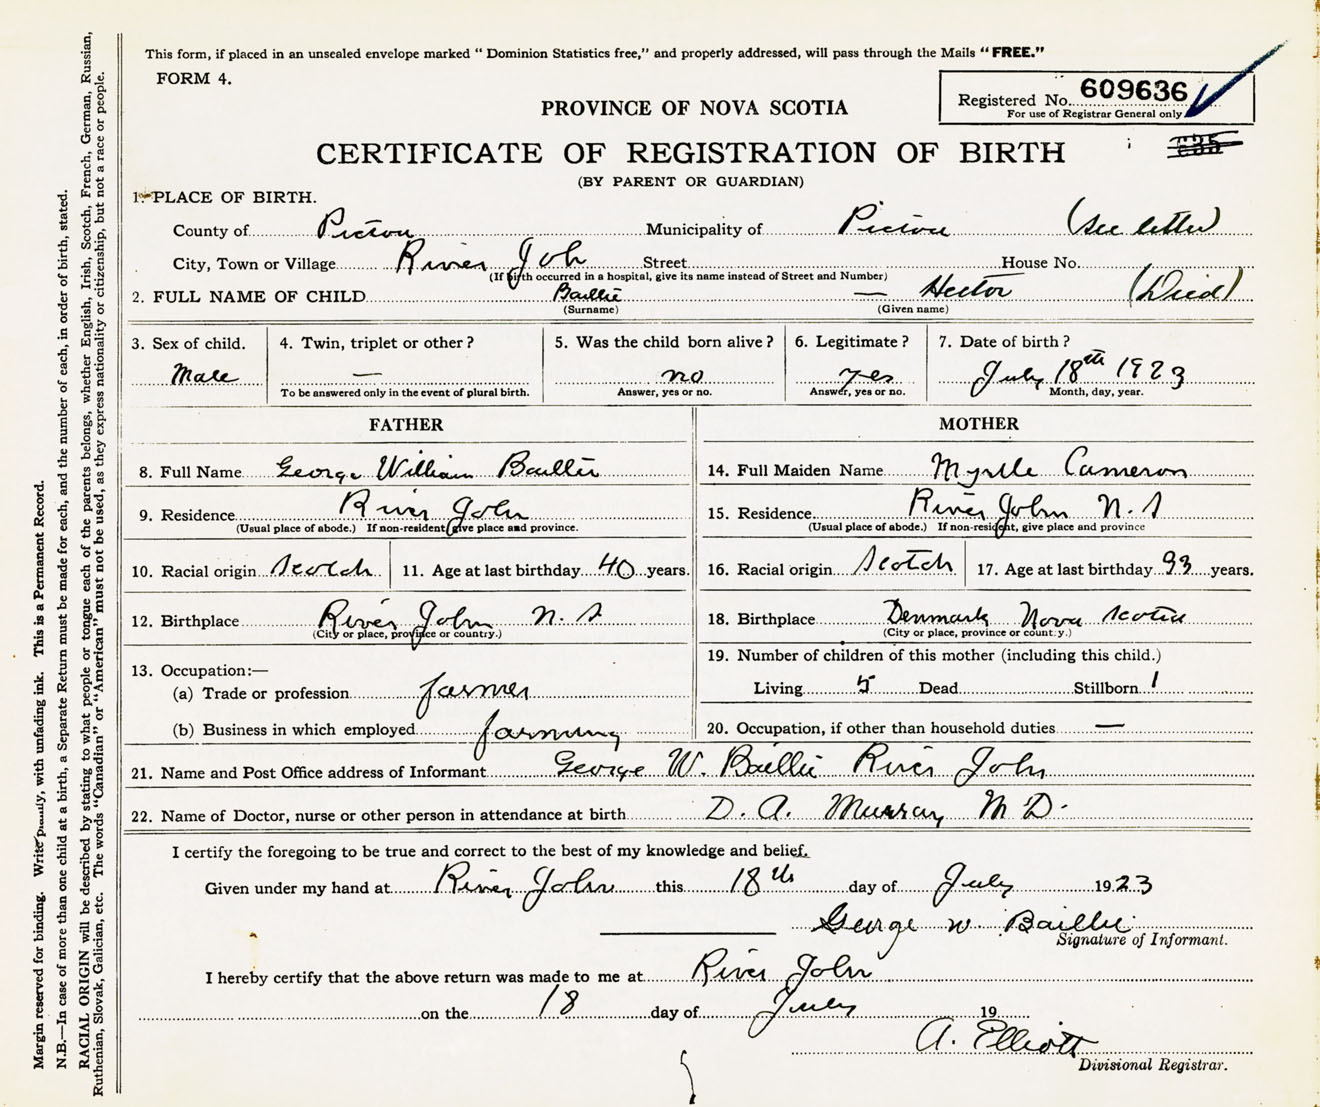 This form, if placed in an unsealed envelope marked "Dominion Statistics free," and properly addressed, will pass through the Mails "FREE."
FORM 4.
Registered No. 609636
For use of Registrar General only
PROVINCE OF NOVA SCOTIA
CERTIFICATE OF REGISTRATION OF BIRTH
(BY PARENT OR GUARDIAN)
1. PLACE OF BIRTH.
County of Pictou Municipality of Pictou (see letter)
City, Town or Village River Joh Street House No.
(If birth occurred in a hospital, give its name instead of Street and Number)
2. FULL NAME OF CHILD Baillie — Hector (Died)
(Surname) (Given name)
3. Sex of child. 4. Twin, triplet or other? 5. Was the child born alive? 6. Legitimate? 7. Date of birth?
Male — no yes July 18th 1923
To be answered only in the event of plural birth. Answer, yes or no. Answer, yes or no. Month, day, year.
FATHER MOTHER
8. Full Name George William Baillie 14. Full Maiden Name Myrtle Cameron
9. Residence River John 15. Residence River John N.S
(Usual place of abode.) If non-resident give place and province. (Usual place of abode.) If non-resident, give place and province
10. Racial origin Scotch 11. Age at last birthday 40 years. 16. Racial origin Scotch 17. Age at last birthday 33 years.
12. Birthplace River John N.S 18. Birthplace Denmark Nova Scotia
(City or place, province or country.) (City or place, province or country.)
13. Occupation:— 19. Number of children of this mother (including this child.)
(a) Trade or profession farmer Living 5 Dead Stillborn 1
(b) Business in which employed farming 20. Occupation, if other than household duties —
21. Name and Post Office address of Informant George W. Baillie River John
22. Name of Doctor, nurse or other person in attendance at birth D. A. Murray M D.
I certify the foregoing to be true and correct to the best of my knowledge and belief.
Given under my hand at River John this 18th day of July 1923
George W. Baillie
Signature of Informant.
I hereby certify that the above return was made to me at River John
on the 18 day of July 19
A. Elliott
Divisional Registrar.
Margin reserved for binding. Write plainly, with unfading ink. This is a Permanent Record.
N.B.—In case of more than one child at a birth, a Separate Return must be made for each, and the number of each, in order of birth, stated.
RACIAL ORIGIN will be described by stating to what people or tongue each of the parents belongs, whether English, Irish, Scotch, French, German, Russian,
Ruthenian, Slovak, Galician, etc. The words "Canadian" or "American" must not be used, as they express nationality or citizenship, but not a race or people.